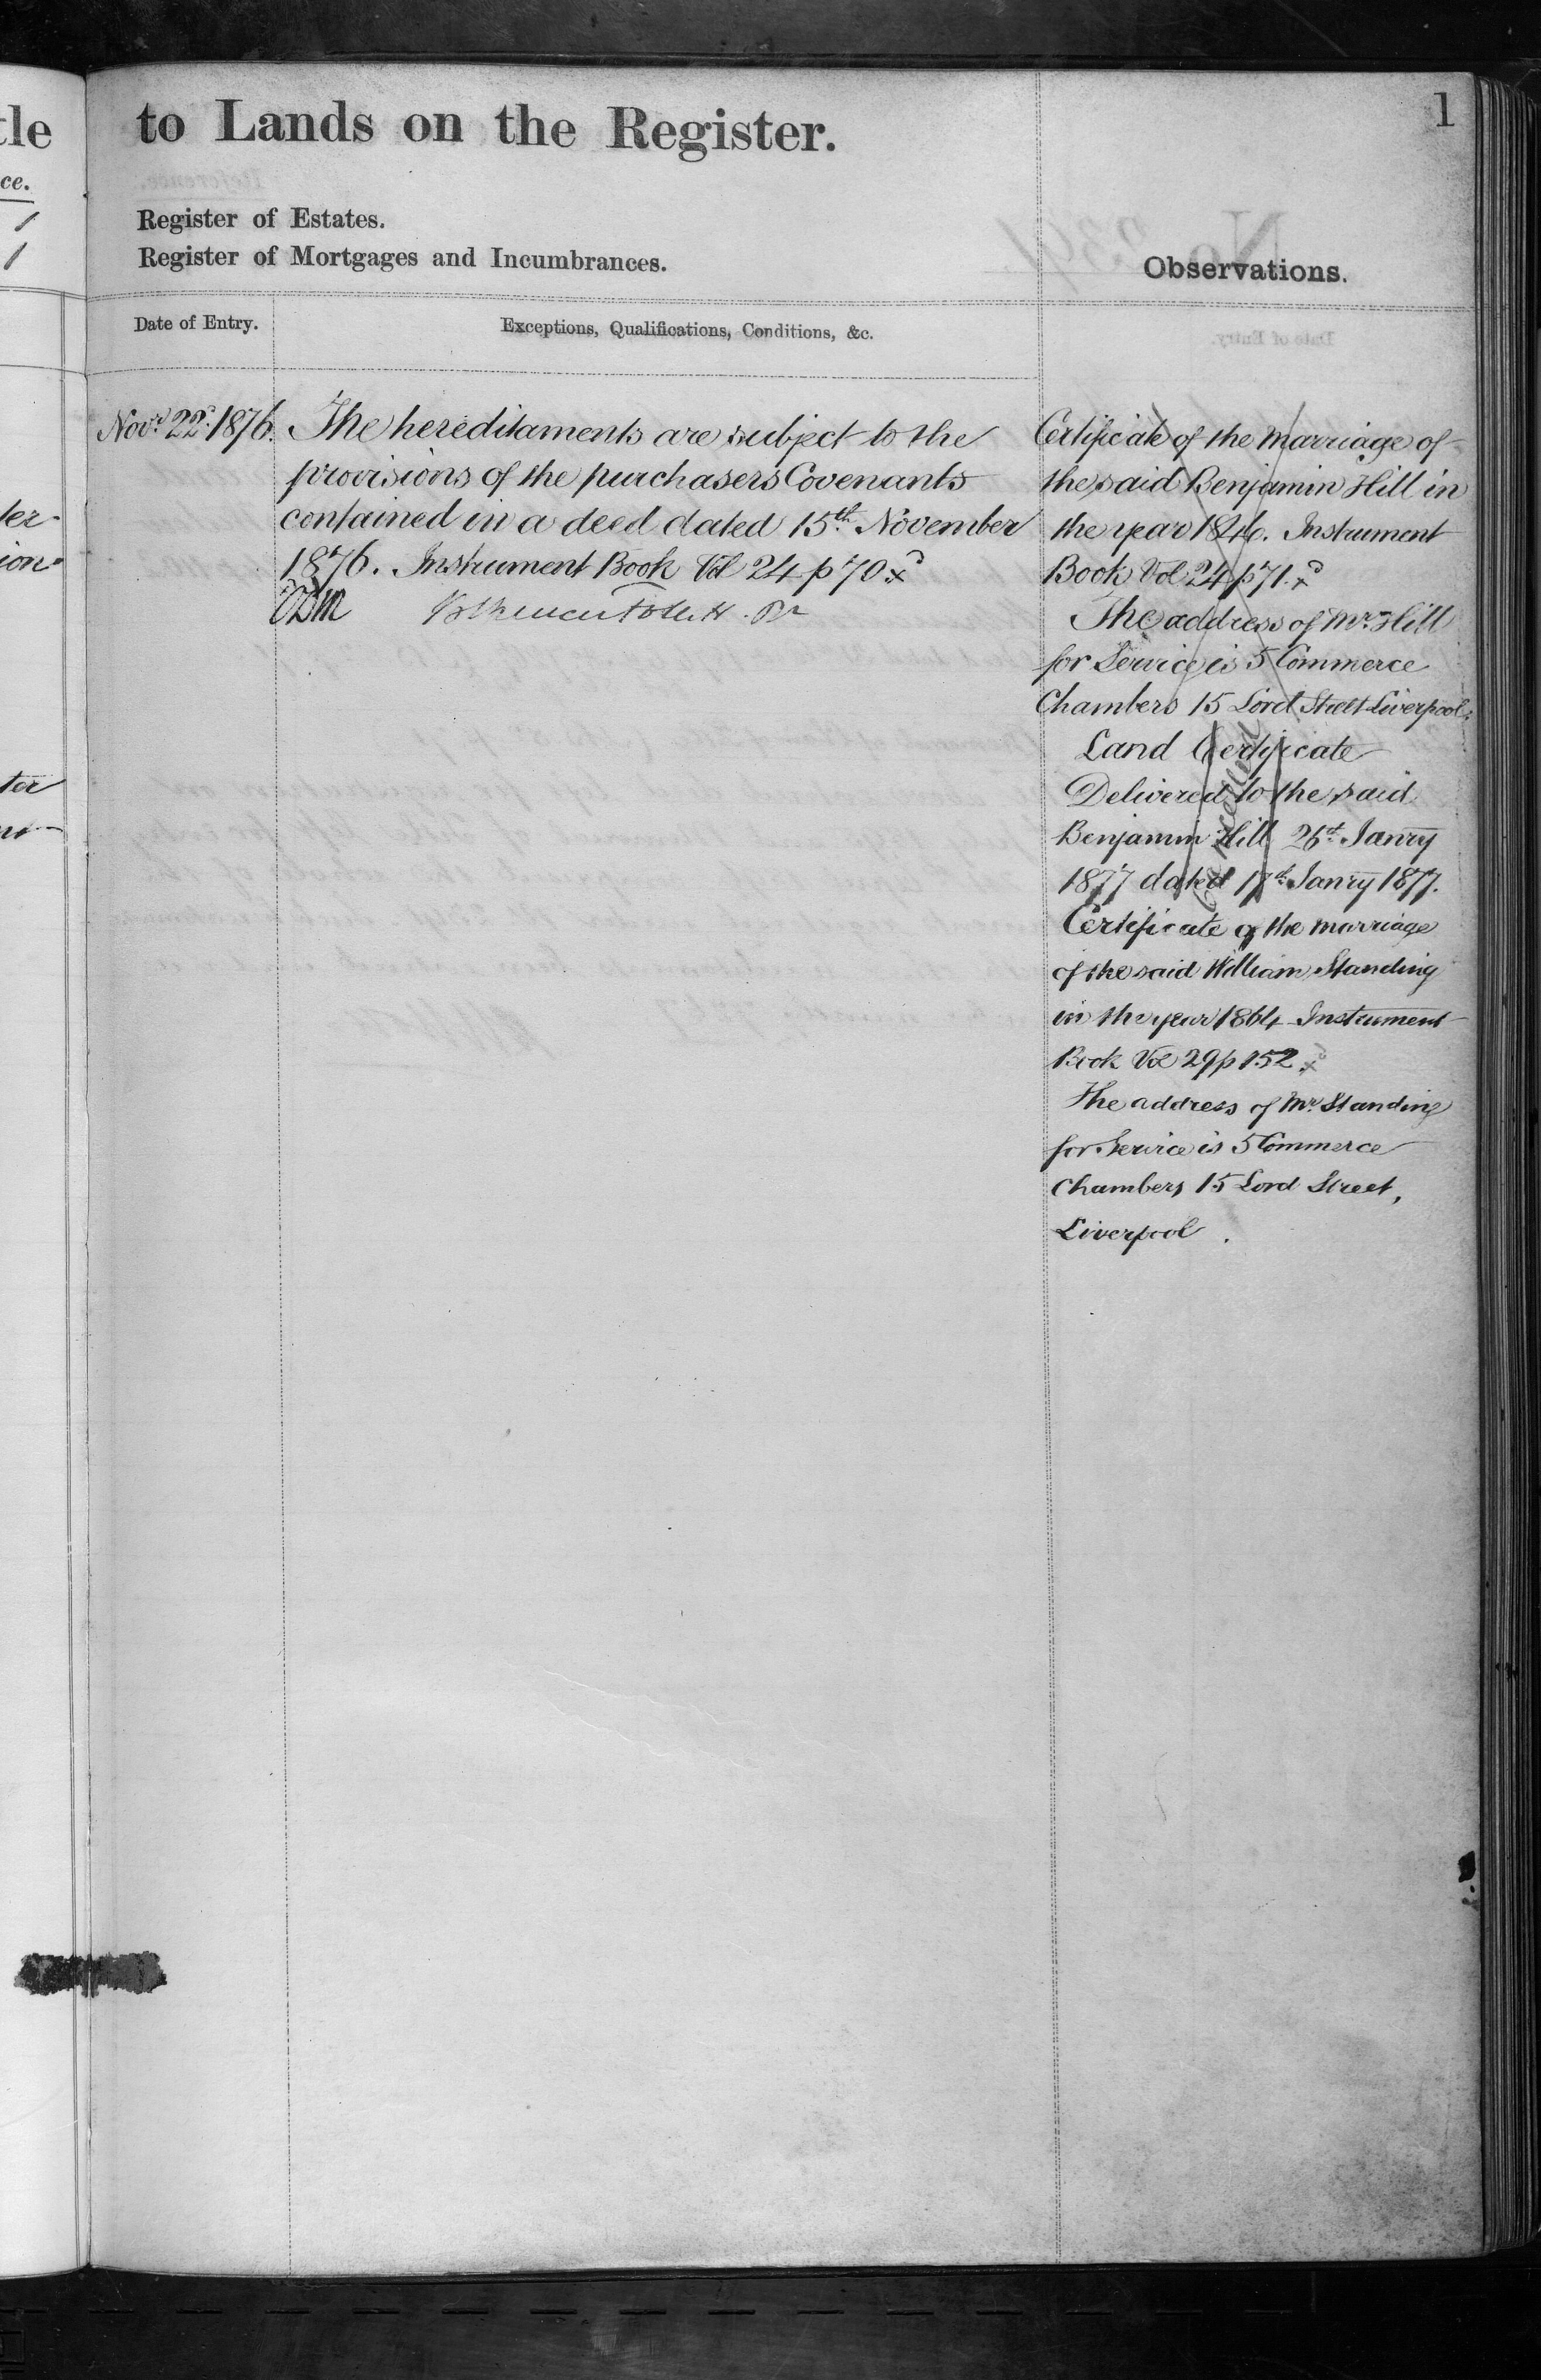 tle
ce.
1
1
to Lands on the Register.
1
Register of Estates.
Register of Mortgages and Incumbrances.
Observations.
Date of Entry.
Exceptions, Qualifications, Conditions, &c.
Novr 22d 1876.
The hereditaments are subject to the
provisions of the purchasers Covenants
contained in a deed dated 15th November
1876. Instrument Book Vol 24 p 70
Certificate of the Marriage of
the said Benjamin Hill in
the year 1846. Instrument
Book Vol 24 p 71.
The address of Mr. Hill
for Service is 5 Commerce
Chambers 15 Lord Street Liverpool.
Land Certificate
Delivered to the said
Benjamin Hill 26th Janry
1877 dated 17th Janry 1877.
Cancelled
Certificate of the marriage
of the said William Standing
in the year 1864 Instrument
Book Vol 29 p 152
The address of Mr Standing
for Service is 5 Commerce
Chambers 15 Lord Street,
Liverpool.